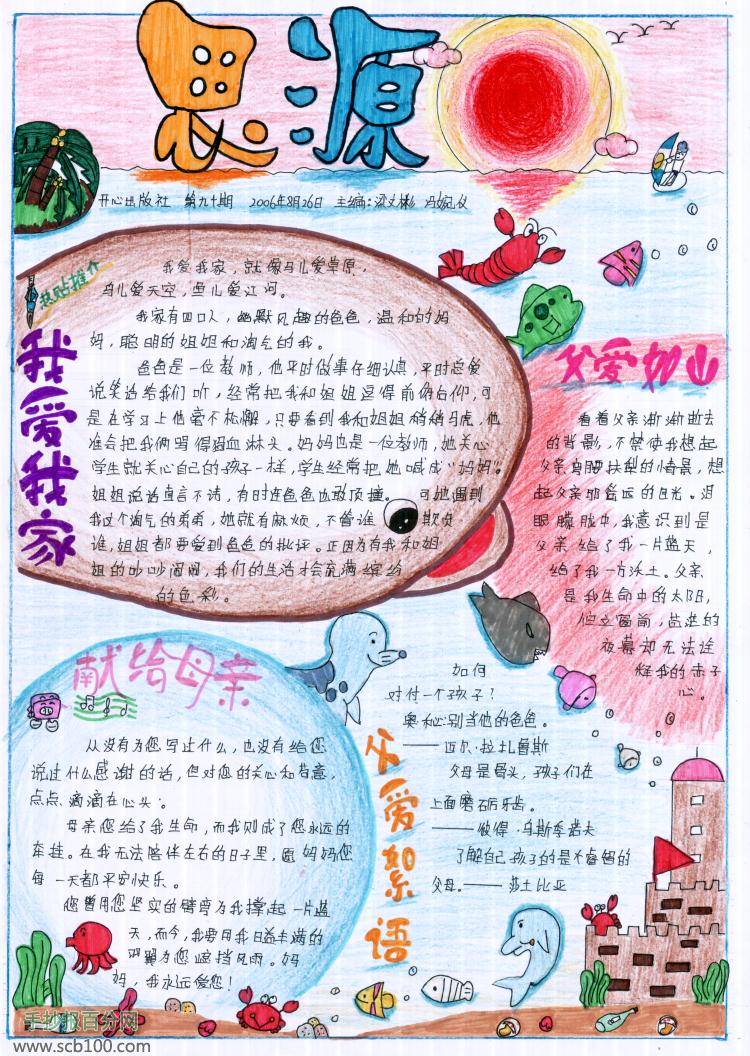 思源
开心出版社 第九十期 2006年8月26日 主编:梁文彬 冯婉仪
热贴推介
我爱我家
我爱我家，就像马儿爱草原，
鸟儿爱天空，鱼儿爱江河。
我家有四口人，幽默风趣的爸爸，温和的妈
妈，聪明的姐姐和淘气的我。
爸爸是一位教师，他平时做事仔细认真，平时总爱
说笑话给我们听，经常把我和姐姐逗得前俯后仰，可
是在学习上他毫不松懈，只要看到我和姐姐稍稍马虎，他
准会把我俩骂得狗血淋头。妈妈也是一位教师，她关心
学生就关心自己的孩子一样，学生经常把她喊成“妈妈”。
姐姐说话直言不讳，有时连爸爸也敢顶撞。可她遇到
我这个淘气的弟弟，她就有麻烦，不管谁欺负
谁，姐姐都要受到爸爸的批评。正因为有我和姐
姐的吵吵闹闹，我们的生活才会充满缤纷
的色彩。
父爱如山
看着父亲渐渐逝去
的背影，不禁使我想起
父亲弯腰扶犁的情景，想
起父亲那高远的目光。泪
眼朦胧中，我意识到是
父亲给了我一片蓝天，
给了我一方沃土。父亲
是我生命中的太阳，
伫立窗前，苍茫的
夜幕却无法遮
辉我的赤子
心。
献给母亲
从没有为您写过什么，也没有给您
说过什么感谢的话，但对您的关心和着意，
点点滴滴在心头。
母亲您给了我生命，而我则成了您永远的
牵挂。在我无法陪伴左右的日子里，愿妈妈您
每一天都平安快乐。
您曾用您坚实的臂弯为我撑起一片蓝
天，而今，我要用我日益丰满的
羽翼为您遮挡风雨。妈
妈，我永远爱您！
父爱絮语
如何
对付一个孩子？
奥秘：别当他的爸爸。
——迈尔·拉扎鲁斯
父母是骨头，孩子们在
上面磨砺牙齿。
——彼得·乌斯季诺夫
了解自己孩子的是不睿智的
父母。——莎士比亚
手抄报百分网
www.scb100.com